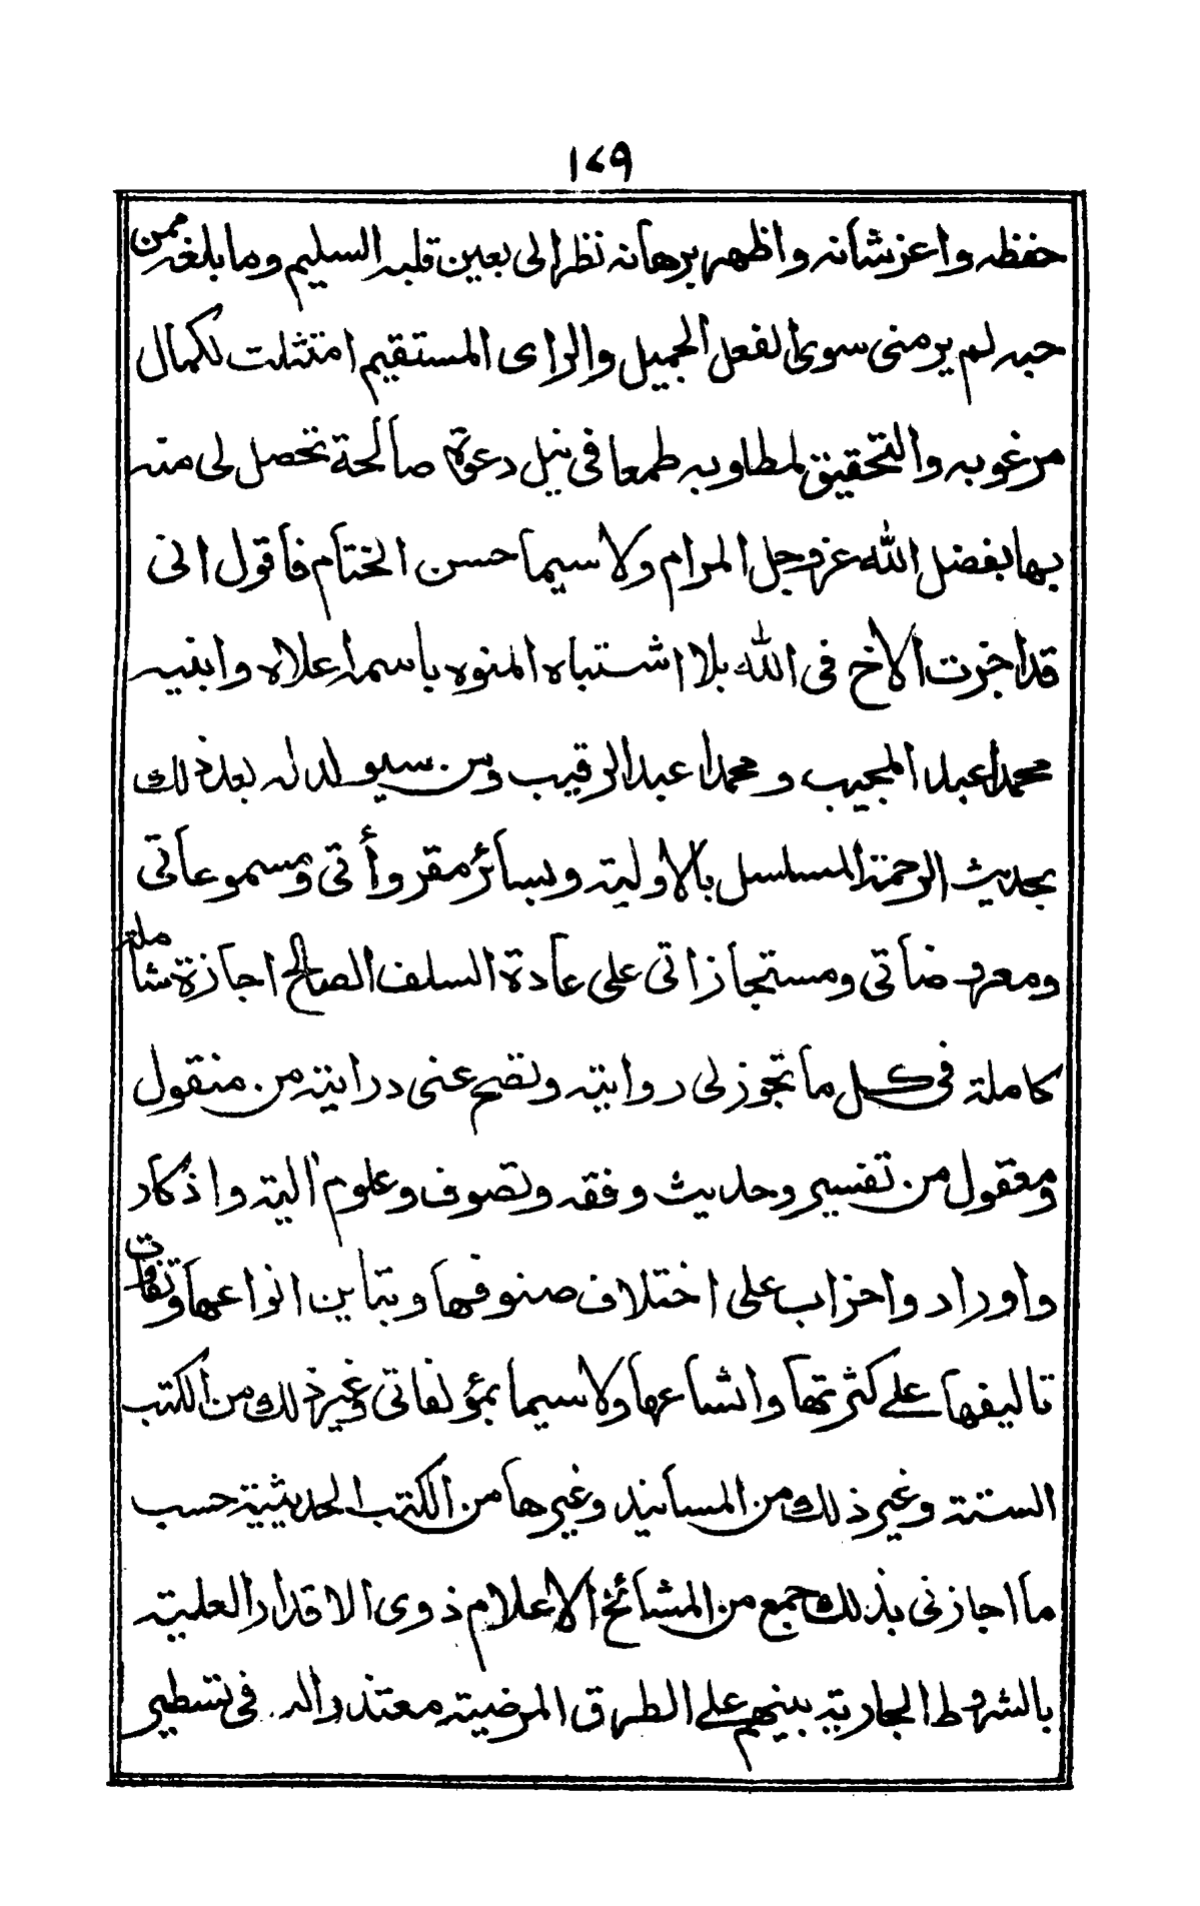 ١٧٩
حفظه واعز شأنه واظهر برهانه نظر الى بعين قلبه السليم وما بلغه ممن
حبه لم ير منى سوى الفعل الجميل والراى المستقيم امتثلت لكمال
مرغوبه والتحقيق لمطلوبه طمعا فى نيل دعوة صالحة تحصل لى منه
بها بفضل الله عز وجل المرام ولا سيما حسن الختام فأقول انى
قد اجزت الاخ فى الله بلا اشتباه المنوه باسمه اعلاه وابنيه
محمد عبد المجيب و محمد عبد الرقيب ومن سيولد له بعد ذلك
بحديث الرحمة المسلسل بالاولية وبسائر مقروأتى ومسموعاتى
ومعروضاتى ومستجازاتى على عادة السلف الصالح اجازة شاملة
كاملة فى كل ما تجوز لى روايته وتصح عنى درايته من منقول
ومعقول من تفسير وحديث وفقه وتصوف وعلوم الية واذكار
واوراد واحزاب على اختلاف صنوفها وتباين انواعها وتفاوت
تاليفها على كثرتها واتساعها ولا سيما بمؤلفاتى وغير ذلك من الكتب
الستة وغير ذلك من المسانيد وغيرها من الكتب الحديثية حسب
ما اجازنى بذلك جمع من المشائخ الاعلام ذوى الاقدار العلية
بالشروط الجارية بينهم على الطرق المرضية معتذرا له فى تسطير